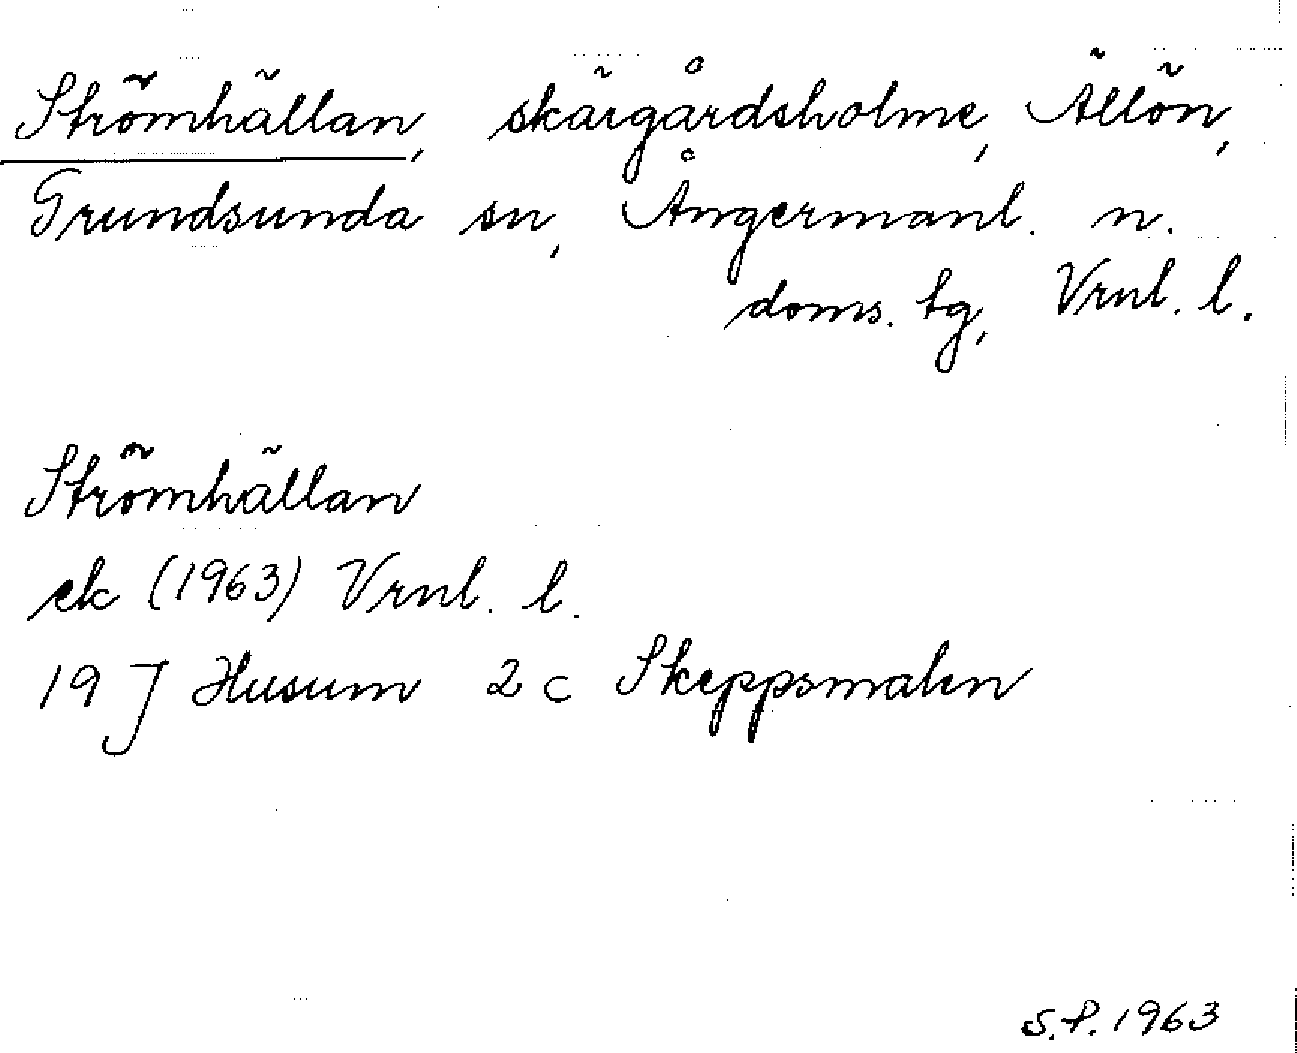 Strömhällan, skärgårdsholme, Ällön,
Grundsunda sn, Ångermanl. n.
doms. tg, Vrnl. l.
Strömhällan
ek (1963) Vrnl. l.
19 J Husum 2 c Skeppsmalen
S.P. 1963